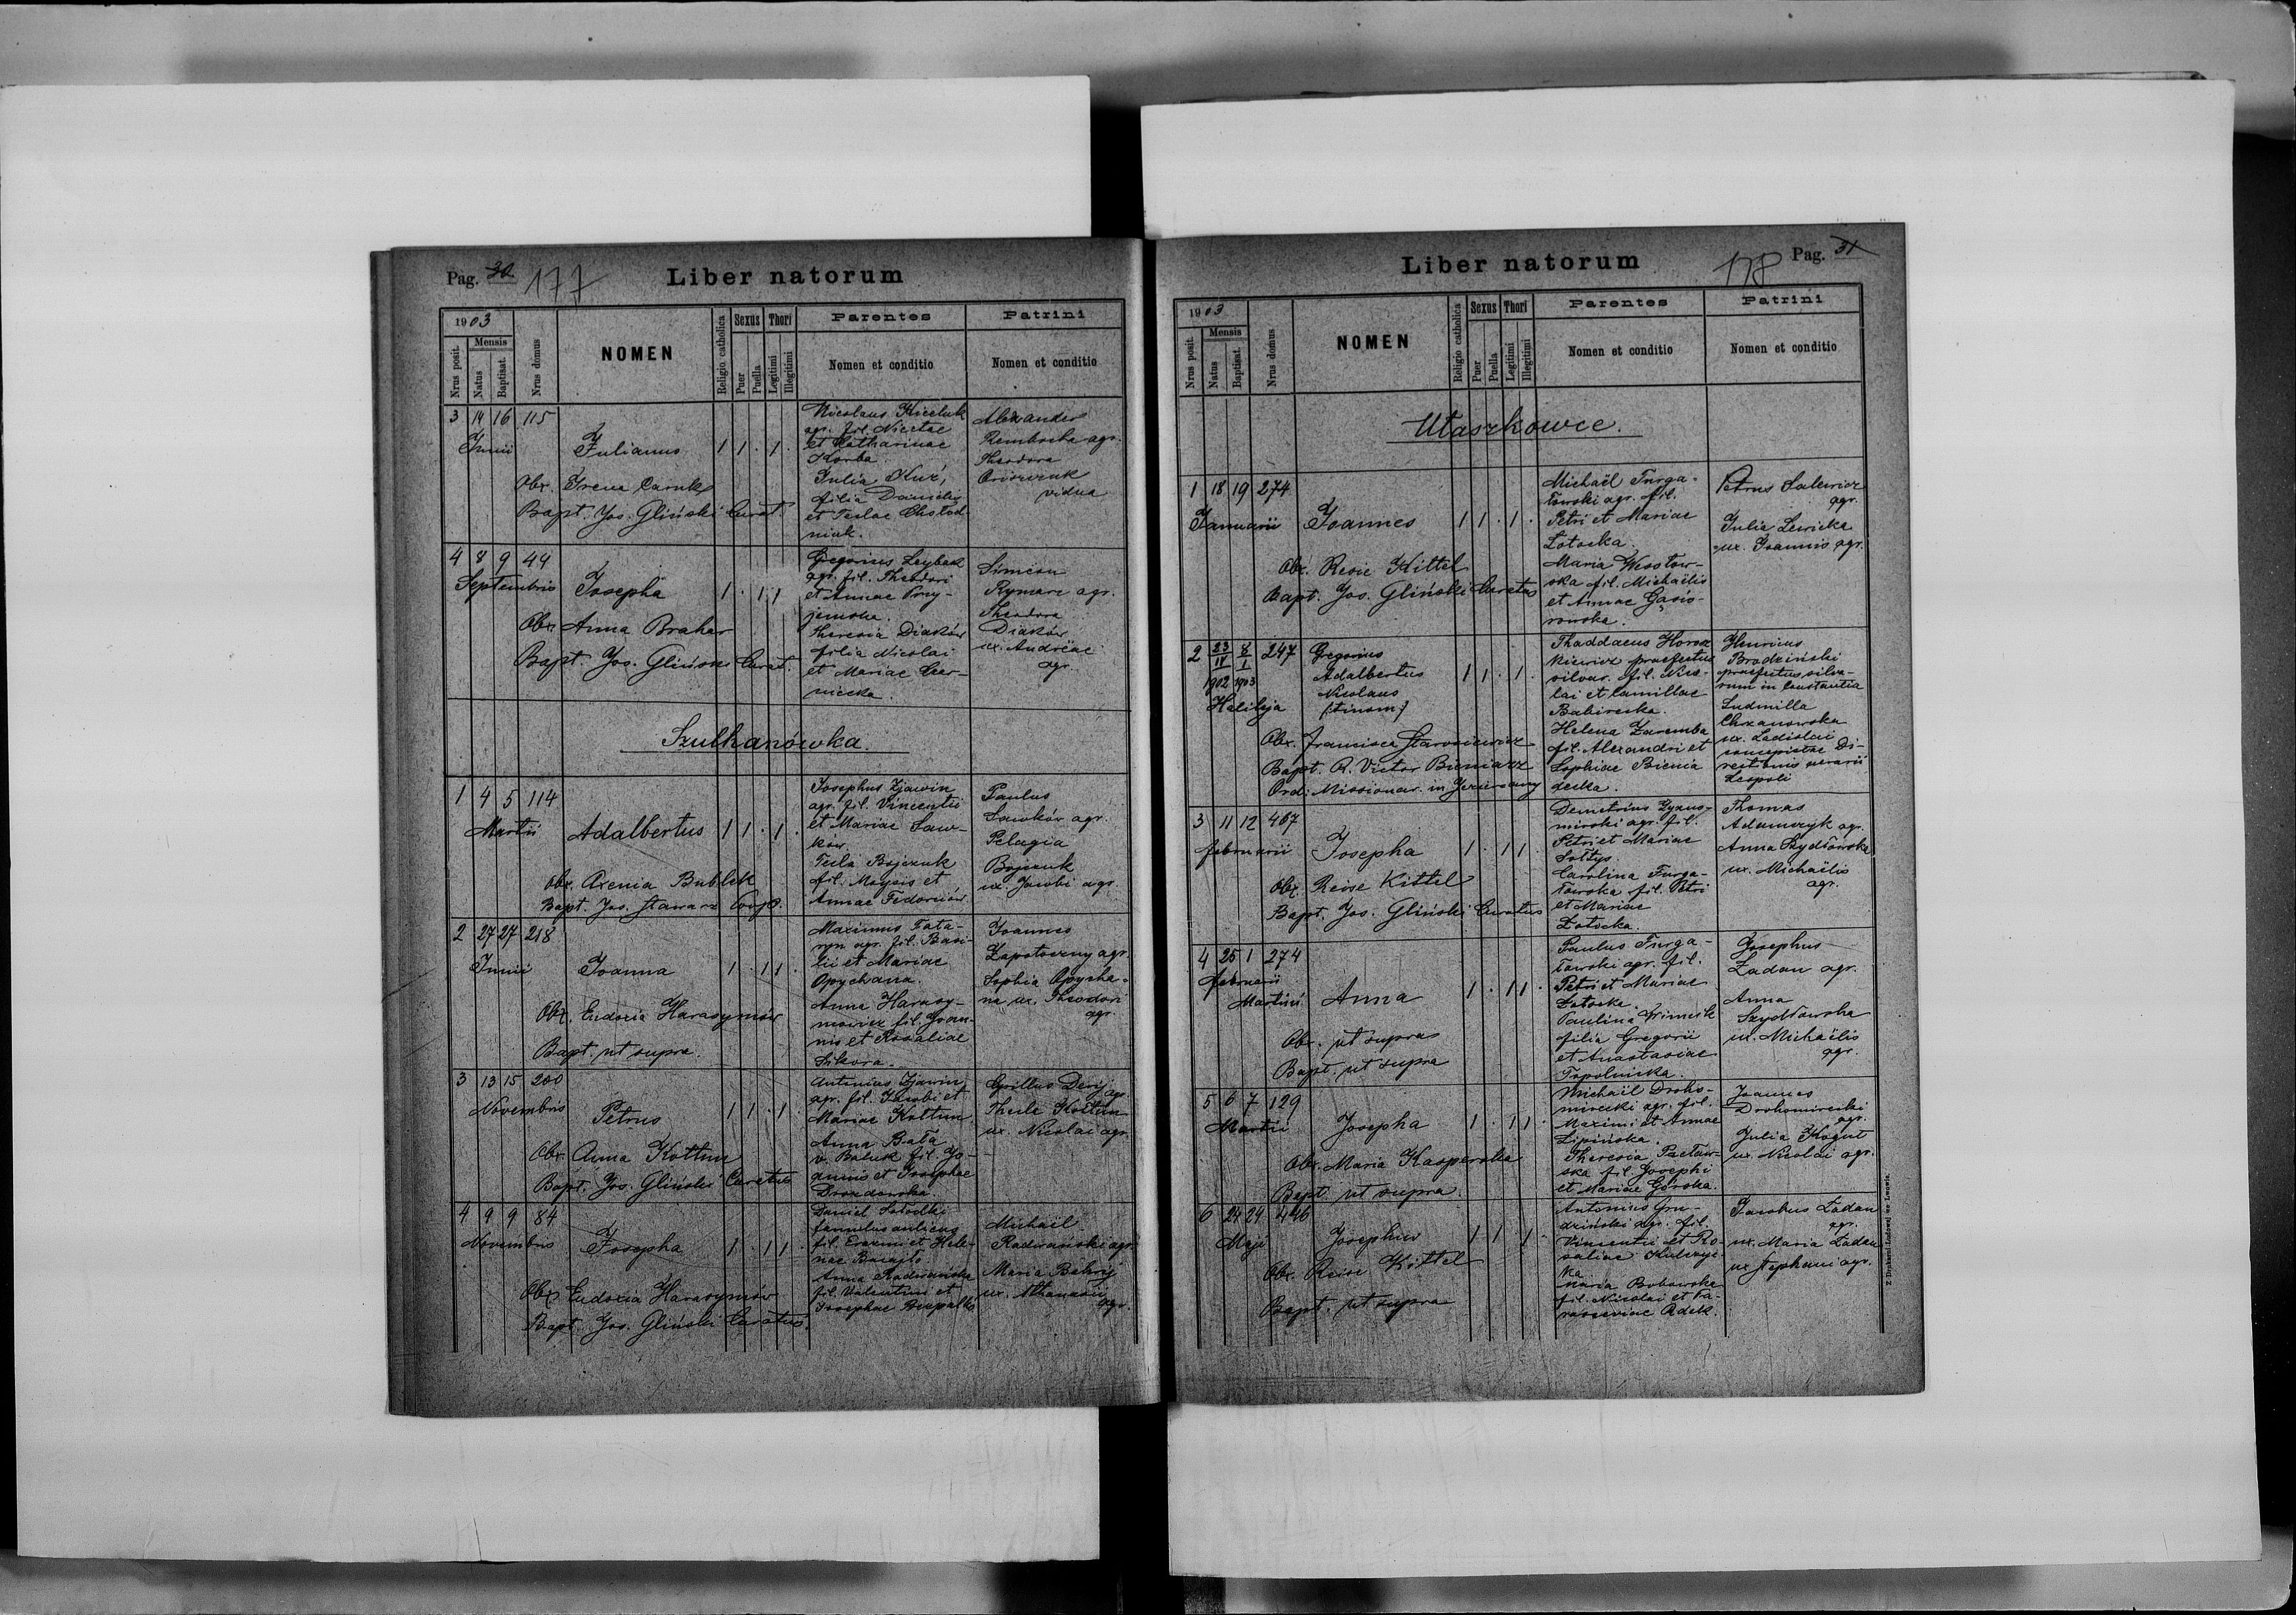 Pag. 30 177 Liber natorum
1903
Nrus posit.
Mensis
Natus
Baptisat.
Nrus domus
NOMEN
Religio catholica
Sexus
Puer
Puella
Thori
Legitimi
Illegitimi
Parentes
Nomen et conditio
Patrini
Nomen et conditio
3 14 16 115
Junii
Julianus
1 1 . 1 .
Obx. Irena
Bapt. Jos. Gliński Curat.
Nicolaus Kiceluk
agr. fil. Nicetae
et Catharinae
Korba.
Julia Kuź,
filia Danielis
et Teclae Chołod-
niak.
Alexander
agr.
Theodora
vidua
4 8 9 44
Septembris
Josepha
1 . 1 1
Obx. Anna Brahar
Bapt. Jos. Gliński Curat.
Gregorius
agr. fil. Theodori
et Annae Przy-
jemska.
Theresia Diaków
filia Nicolai
et Mariae Czer-
niecka.
Simeon
Rymarz agr.
Theodora
Diaków
ux. Andreae
agr.
Szulhanówka.
1 4 5 114
Martii
Adalbertus
1 1 . 1 .
Obx. Axenia Bublek
Bapt. Jos. Stawarz Coop.
Josephus Zjawin
agr. fil. Vincentii
et Mariae Saw-
ków.
Tecla Bojczuk
fil. Moysis et
Annae Fedorciów
Paulus
Sawków agr.
Pelagia
Bojczuk
ux. Jacobi agr.
2 27 27 218
Junii
Joanna
1 . 1 1 .
Obx. Eudoxia Harasymów
Bapt. ut supra.
Maximus Tata-
ryn agr. fil. Basi-
lii et Mariae
Opychana.
Anna Harasy-
mowicz fil. Joan-
nis et Rosaliae
Sikora.
Joannes
Zapotoczny agr.
Sophia Opycha-
na ux. Theodori
agr.
3 13 15 200
Novembris
Petrus
1 1 . 1 .
Obx. Anna Kottun
Bapt. Jos. Gliński Curatus
Antonius Zjawin
agr. fil. Jacobi et
Mariae Kottun.
Anna Bała
v. Baluk fil. Jo-
annis et Josephae
Drozdowska.
Cyrillus Derij
agr.
Thecla Kottun
ux. Nicolai agr.
4 9 9 84
Novembris
Josepha
1 . 1 1 .
Obx. Eudoxia Harasymów
Bapt. Jos. Gliński Curatus.
Daniel
famulus aulicus
fil. Erazmi et Hele-
nae
Anna Radwańska
fil. Valentini et
Josephae
Michaël
Radwański agr.
Maria Behrij
ux. Athanasii
agr.
Liber natorum 178 Pag. 31
1903
Nrus posit.
Mensis
Natus
Baptisat.
Nrus domus
NOMEN
Religio catholica
Sexus
Puer
Puella
Thori
Legitimi
Illegitimi
Parentes
Nomen et conditio
Patrini
Nomen et conditio
Ułaszkowce.
1 18 19 274
Januarii
Joannes
1 1 . 1 .
Obx. Resie Kittel
Bapt. Jos. Gliński Curatus
Michaël Furga-
łowski agr. fil.
Petri et Mariae
Łotocka.
Maria Wesołow-
ska fil. Michaëlis
et Annae Gąsio-
rowska.
Petrus Salewicz
agr.
Julia Lewicka
ux. Joannis agr.
2 23 8 247
IV I
1902 1903
Halileja
Gregorius
Adalbertus
Nicolaus
(trinom.)
1 1 . 1 .
Obx. Francisca Starosiewicz
Bapt. R. Victor Bieniasz
Ord. Missionar. in Jezierzany
Thaddaeus Horosz
kiewicz praefectus
silvar. fil. Nico-
lai et Camillae
Babirecka.
Helena Zaremba
fil. Alexandri et
Sophiae Bienia
decka.
Henricus
Brodziński
praefectus silva-
rum in Constantia
Ludmilla
Chrzanowska
ux. Ladislai
conceptistae Di-
rectionis aerarii
Leopoli
3 11 12 407
Februarii
Josepha
1 . 1 1 .
Obx. Reise Kittel
Bapt. Jos. Gliński Curatus
Demetrius
agr. fil.
Petri et Mariae
Sołtys.
Carolina Furga-
łowska fil. Petri
et Mariae
Łotocka.
Thomas
Adamczyk agr.
Anna Szydłowska
ux. Michaëlis
agr.
4 25 1 274
Februarii
Martii
Anna
1 . 1 1 .
Obx. ut supra
Bapt. ut supra
Paulus Furga-
łowski agr. fil.
Petri et Mariae
Łotocka.
Paulina
filia Gregorii
et Anastasiae
Topolnicka.
Josephus
Ładan agr.
Anna
Szydłowska
ux. Michaëlis
agr.
5 6 7 129
Martii
Josepha
1 . 1 1 .
Obx. Maria Kasperska
Bapt. ut supra.
Michaël Droho-
mirecki agr. fil.
Maximi et Annae
Lipińska.
Theresia
fil. Josephi
et Mariae Górska.
Joannes
Drohomirecki
agr.
Julia Kogut
ux. Nicolai agr.
6 24 24 446
Maji
Josephus
1 1 . 1 .
Obx. Reise Kittel
Bapt. ut supra
Antonius Gru-
dziński agr. fil.
Vincentii et Ro-
saliae
Maria Bobowska
fil. Nicolai et Pa-
rasceviae
Jacobus Ładan
agr.
ux. Maria Ładan
ux. Stephani agr.
Z Drukarni Ludowej we Lwowie.